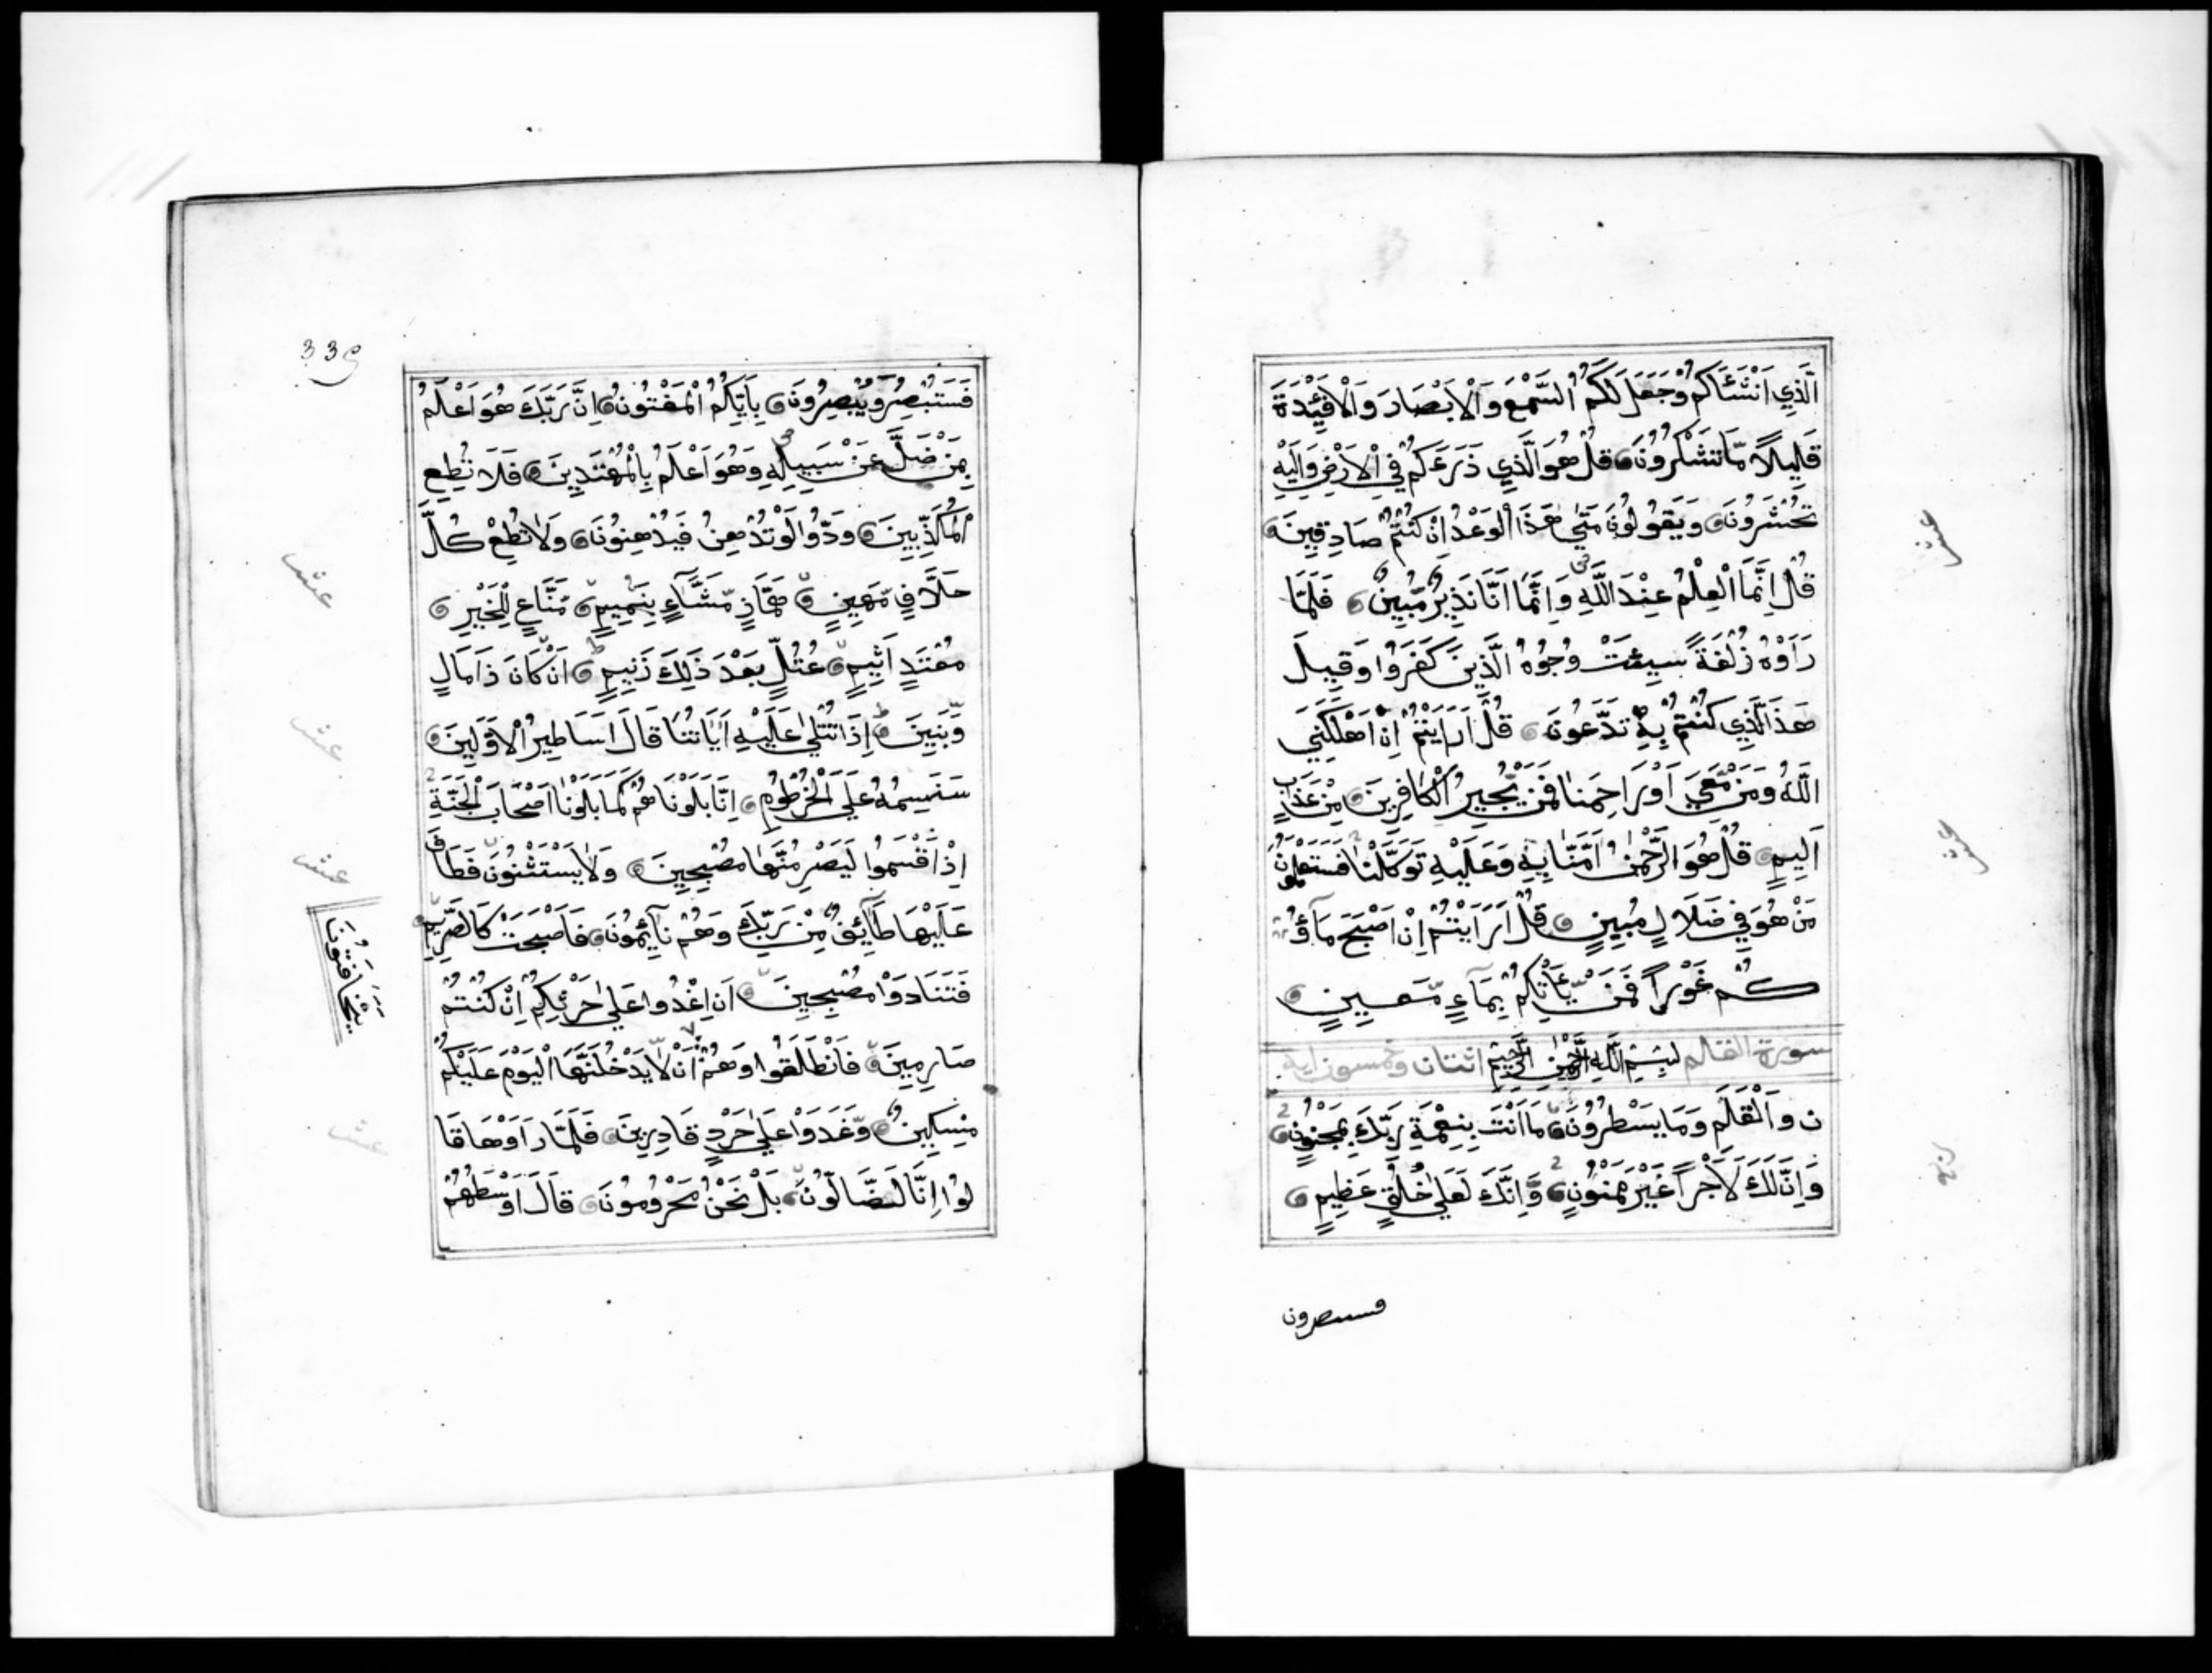 الَّذِي اَنْشَئَاكُمْ وَجَعَلَ لَكُمُ السَّمْعَ وَالْاَبْصَارَ وَالْاَفْئِدَةَ
قَلِيلاً مَّا تَشْكُرُونَ قُلْ هُوَ الَّذِي ذَرَءَكُمْ فِي الْاَرْضِ وَاِلَيْهِ
تُحْشَرُونَ وَيَقُولُونَ مَتَي هَذَا الْوَعْدُ اِنْ كُنْتُمْ صَادِقِينَ
قُلْ اِنَّمَا الْعِلْمُ عِنْدَ اللَّهِ وَاِنَّمَا اَنَا نَذِيرٌ مُّبِينٌ فَلَمَّا
رَاَوْهُ زُلْفَةً سِيئَتْ وُجُوهُ الَّذِينَ كَفَرُوا وَقِيلَ
هَذَا الَّذِي كُنْتُمْ بِهِ تَدَّعُونَ قُلْ اَرَاَيْتُمْ اِنْ اَهْلَكَنِيَ
اللَّهُ وَمَنْ مَّعِيَ اَوْ رَاحِمَنَا فَمَنْ يُّجِيرُ الْكَافِرِينَ مِنْ عَذَابٍ
اَلِيمٍ قُلْ هُوَ الرَّحْمٰنُ اٰمَنَّا بِهِ وَعَلَيْهِ تَوَكَّلْنَا فَسَتَعْلَمُونَ
مَنْ هُوَ فِي ضَلَالٍ مُّبِينٍ قُلْ اَرَاَيْتُمْ اِنْ اَصْبَحَ مَآؤُ
كُمْ غَوْراً فَمَنْ يَّاْتِكُمْ بِمَاءٍ مَّعِينٍ
سورة القلم بِسْمِ اللَّهِ الرَّحْمٰنِ الرَّحِيمِ اثنتان وخمسون اية
ن وَالْقَلَمِ وَمَا يَسْطُرُونَ مَا اَنْتَ بِنِعْمَةِ رَبِّكَ بِمَجْنُونٍ
وَاِنَّ لَكَ لَاَجْراً غَيْرَ مَمْنُونٍ وَّاِنَّكَ لَعَلَي خُلُقٍ عَظِيمٍ
فستبصرون
33
فَسَتُبْصِرُ وَيُبْصِرُونَ بِاَيِّكُمُ الْمَفْتُونُ اِنَّ رَبَّكَ هُوَ اَعْلَمُ
بِمَنْ ضَلَّ عَنْ سَبِيلِهِ وَهُوَ اَعْلَمُ بِالْمُهْتَدِينَ فَلَا تُطِعِ
الْمُكَذِّبِينَ وَدُّوا لَوْ تُدْهِنُ فَيُدْهِنُونَ وَلَا تُطِعْ كُلَّ
حَلَّافٍ مَّهِينٍ هَمَّازٍ مَّشَّآءٍ بِنَمِيمٍ مَّنَّاعٍ لِلْخَيْرِ
مُعْتَدٍ اَثِيمٍ عُتُلٍّ بَعْدَ ذَلِكَ زَنِيمٍ اَنْ كَانَ ذَا مَالٍ
وَّبَنِينَ اِذَا تُتْلَي عَلَيْهِ اٰيَاتُنَا قَالَ اَسَاطِيرُ الْاَوَّلِينَ
سَنَسِمُهُ عَلَي الْخُرْطُومِ اِنَّا بَلَوْنَاهُمْ كَمَا بَلَوْنَا اَصْحَابَ الْجَنَّةِ
اِذْ اَقْسَمُوا لَيَصْرِمُنَّهَا مُصْبِحِينَ وَلَا يَسْتَثْنُونَ فَطَافَ
عَلَيْهَا طَآئِفٌ مِّنْ رَبِّكَ وَهُمْ نَآئِمُونَ فَاَصْبَحَتْ كَالصَّرِيمِ
فَتَنَادَوْا مُصْبِحِينَ اَنِ اغْدُوا عَلَي حَرْثِكُمْ اِنْ كُنْتُمْ
صَارِمِينَ فَانْطَلَقُوا وَهُمْ اَنْ لَّا يَدْخُلَنَّهَا الْيَوْمَ عَلَيْكُمْ
يَتَخَافَتُونَ
مِسْكِينٌ وَّغَدَوْا عَلَي حَرْدٍ قَادِرِينَ فَلَمَّا رَاَوْهَا قَا
لُوا اِنَّا لَضَّالُّونَ بَلْ نَحْنُ مَحْرُومُونَ قَالَ اَوْسَطُهُمْ
عشر
عشر
عشر
عشر